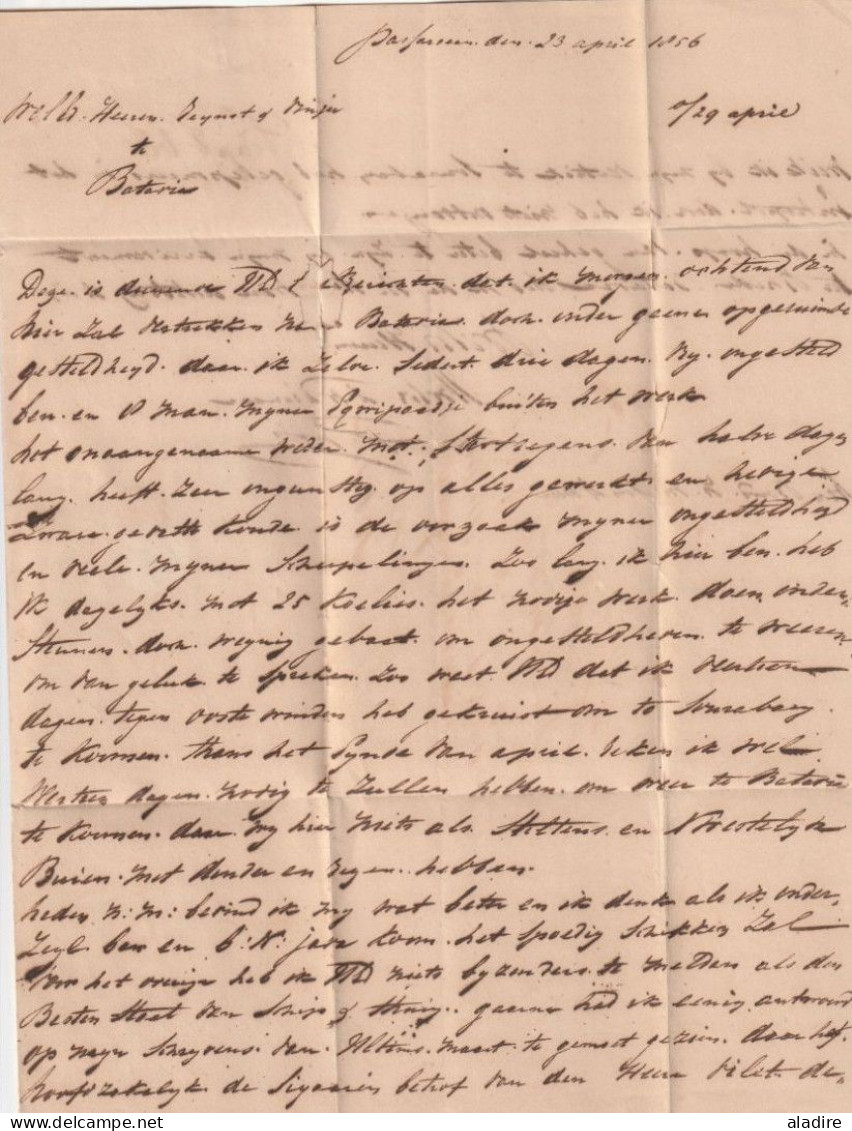 den 23 april 1856
WelEd. Heeren Reynst & Vinju
te
Batavia
29 april
Deze is dienende UEd te Berichten dat ik morgen ochtend van
hier zal vertrekken naar Batavia doch onder geene opgeruimde
gesteldheyd daar ik zelve sedert drie dagen by ongesteld
ben en 8 man myner Equipaadje buiten het werk
het onaangename weder met Stortregens van halve dagen
lang heeft zeer ongunstig op alles gewerkt en hevige
zware gevatte koude is de oorzaak myner ongesteldheyd
en vele myner Schepelingen. Zoo lang ik hier ben heb
ik dagelyks met 25 Koelies het nodige werk doen onder
Steunen doch weynig gebaat om ongesteldheden te weeren
om van geluk te spreken. Zoo weet UEd dat ik veertien
dagen tegen ooste winden heb gekruist om te Sourabaya
te komen. thans het Eynde van april reken ik wel
veertien dagen nodig te zullen hebben om weer te Batavia
te komen daar wy hier niets als Stiltens en N Westelyke
Buien met donder en regen hebben.
heden n: m: bevind ik my wat beter en ik denk als ik onder
Zeyl ben en b: N: java kom het spoedig schikken zal
voor het overige heb ik UEd niets byzonders te melden als den
Besten Staat van Schip & tuig gaarne had ik eenig antwoord
op myn Schryvens van Ultimo maart te gemoet gezien daar het
hoofdzakelyk de Sigaaren betrof van den Heer Vilet de